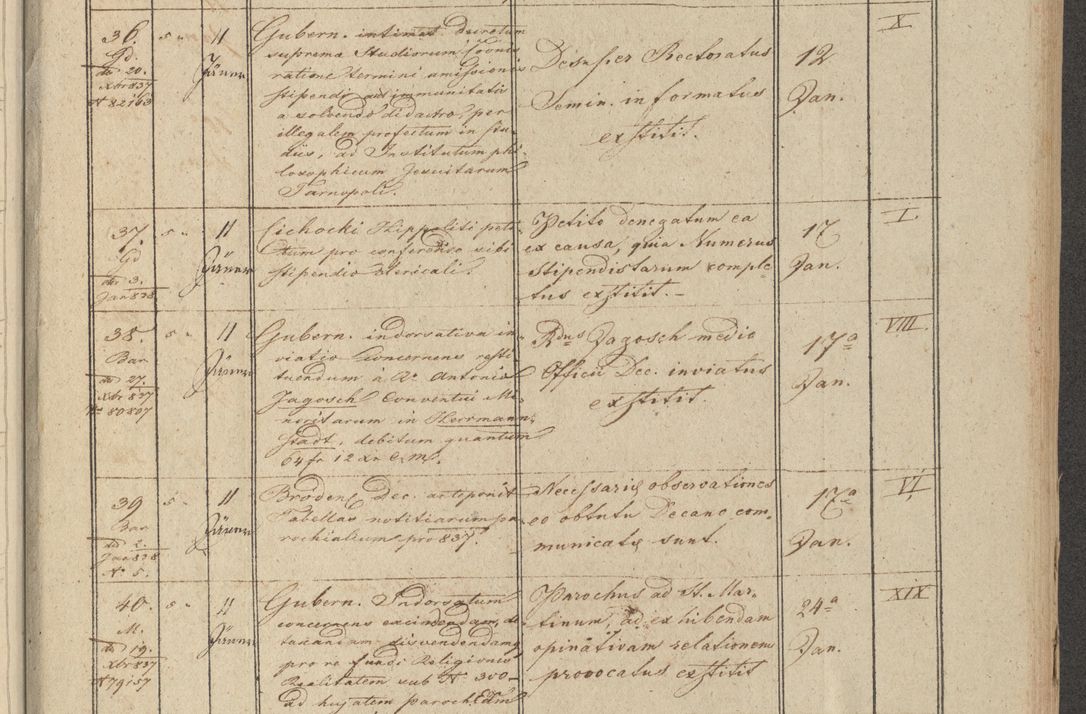 36. 5 " 11 Jänner
Gd.
do 20.
Xbr 837
N 82163
Gubern. intimat decretum
suprema Studiorum
ratione termini amissionis
stipendii ad immunitatis
a solvendo didactro, per
illegalem profectum in stu-
diis, ad Institutum phi-
losophicum Jesuitarum
Tarnopoli.
Desuper Rectoratus
Semin. informatus
exstitit.
12
Jan.
X
37 5 " 11 Jänner
Gd
do 3.
Jan 838
Cichocki Hippoliti peti-
tum pro conferendo sibi
stipendio clericali.
Petito denegatum ea
ex causa, quia Numerus
Stipendistarum comple
tus exstitit. –
17
Jan.
I
38. 5 " 11 Jänner
Bar
do 27.
Xbr 837
N 80807
Gubern. indorsativa in-
viatio concernens resti-
tuendum à R. Antonio
Jagosch Conventui Mi-
noritarum in Herrmann-
stadt, debitum quantum
64 fr 12 xr C.M.
Rdus Jagosch medio
Officii Dec. inviatus
exstitit.
17a
Jan.
VIII
39 5 " 11 Jänner
Bar
do 2.
Jan 838
N. 5.
Broden. Dec. anteponit
Tabellas notitiarum pa-
rochialium pro 837.
Necessariæ observationes
eo obtutu Decano com-
municatæ sunt.
17a
Jan.
VI
40. 5 " 11 Jänner
M.
do 19.
Xbr 837
N 79157
Gubern. Indorsatum
concernens excindendam, de
taxandam divendendamq
pro re fundi Religionis
Realitatem sub N 300 –
ad hujatem paroch.
Parochus ad St. Mar-
tinum, ad exhibendam
opinativam relationem
provocatus exstitit
24a
Jan.
XIX